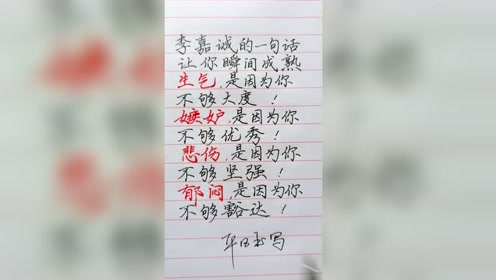 李嘉诚的一句话
让你瞬间成熟
生气,是因为你
不够大度！
嫉妒,是因为你
不够优秀！
悲伤,是因为你
不够坚强！
郁闷,是因为你
不够豁达！